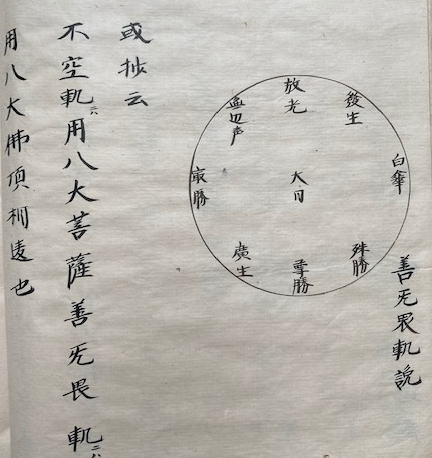 善无畏軌説
白傘
發生
放光
無辺声
大日
最勝
廣生
尊勝
殊勝
或抄云
不空軌云用八大菩薩善无畏軌云
用八大佛頂相違也